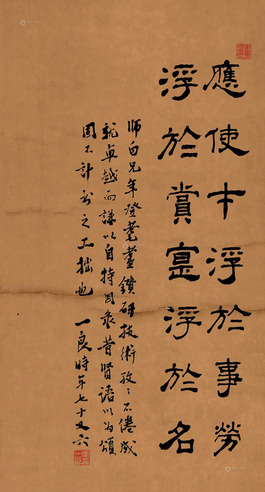 應使本浮於事勞
浮於賞寔浮於名
師白兄年登耄耋鑽研技術孜々不倦成
就卓越而謙以自持因录昔賢語以為頌
固不計書之工拙也 一良時年七十又六